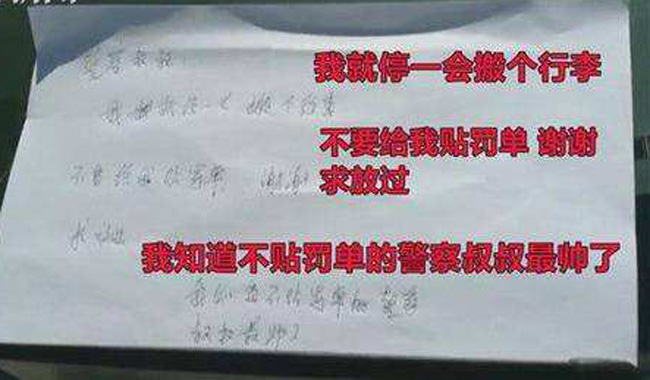 警察叔叔:
我就停一会搬个行李
我就停一会 搬个行李
不要给我贴罚单 谢谢
不要给我贴罚单 谢谢
求放过
求放过
我知道不贴罚单的警察叔叔最帅了
我知道不贴罚单的警察
叔叔最帅了